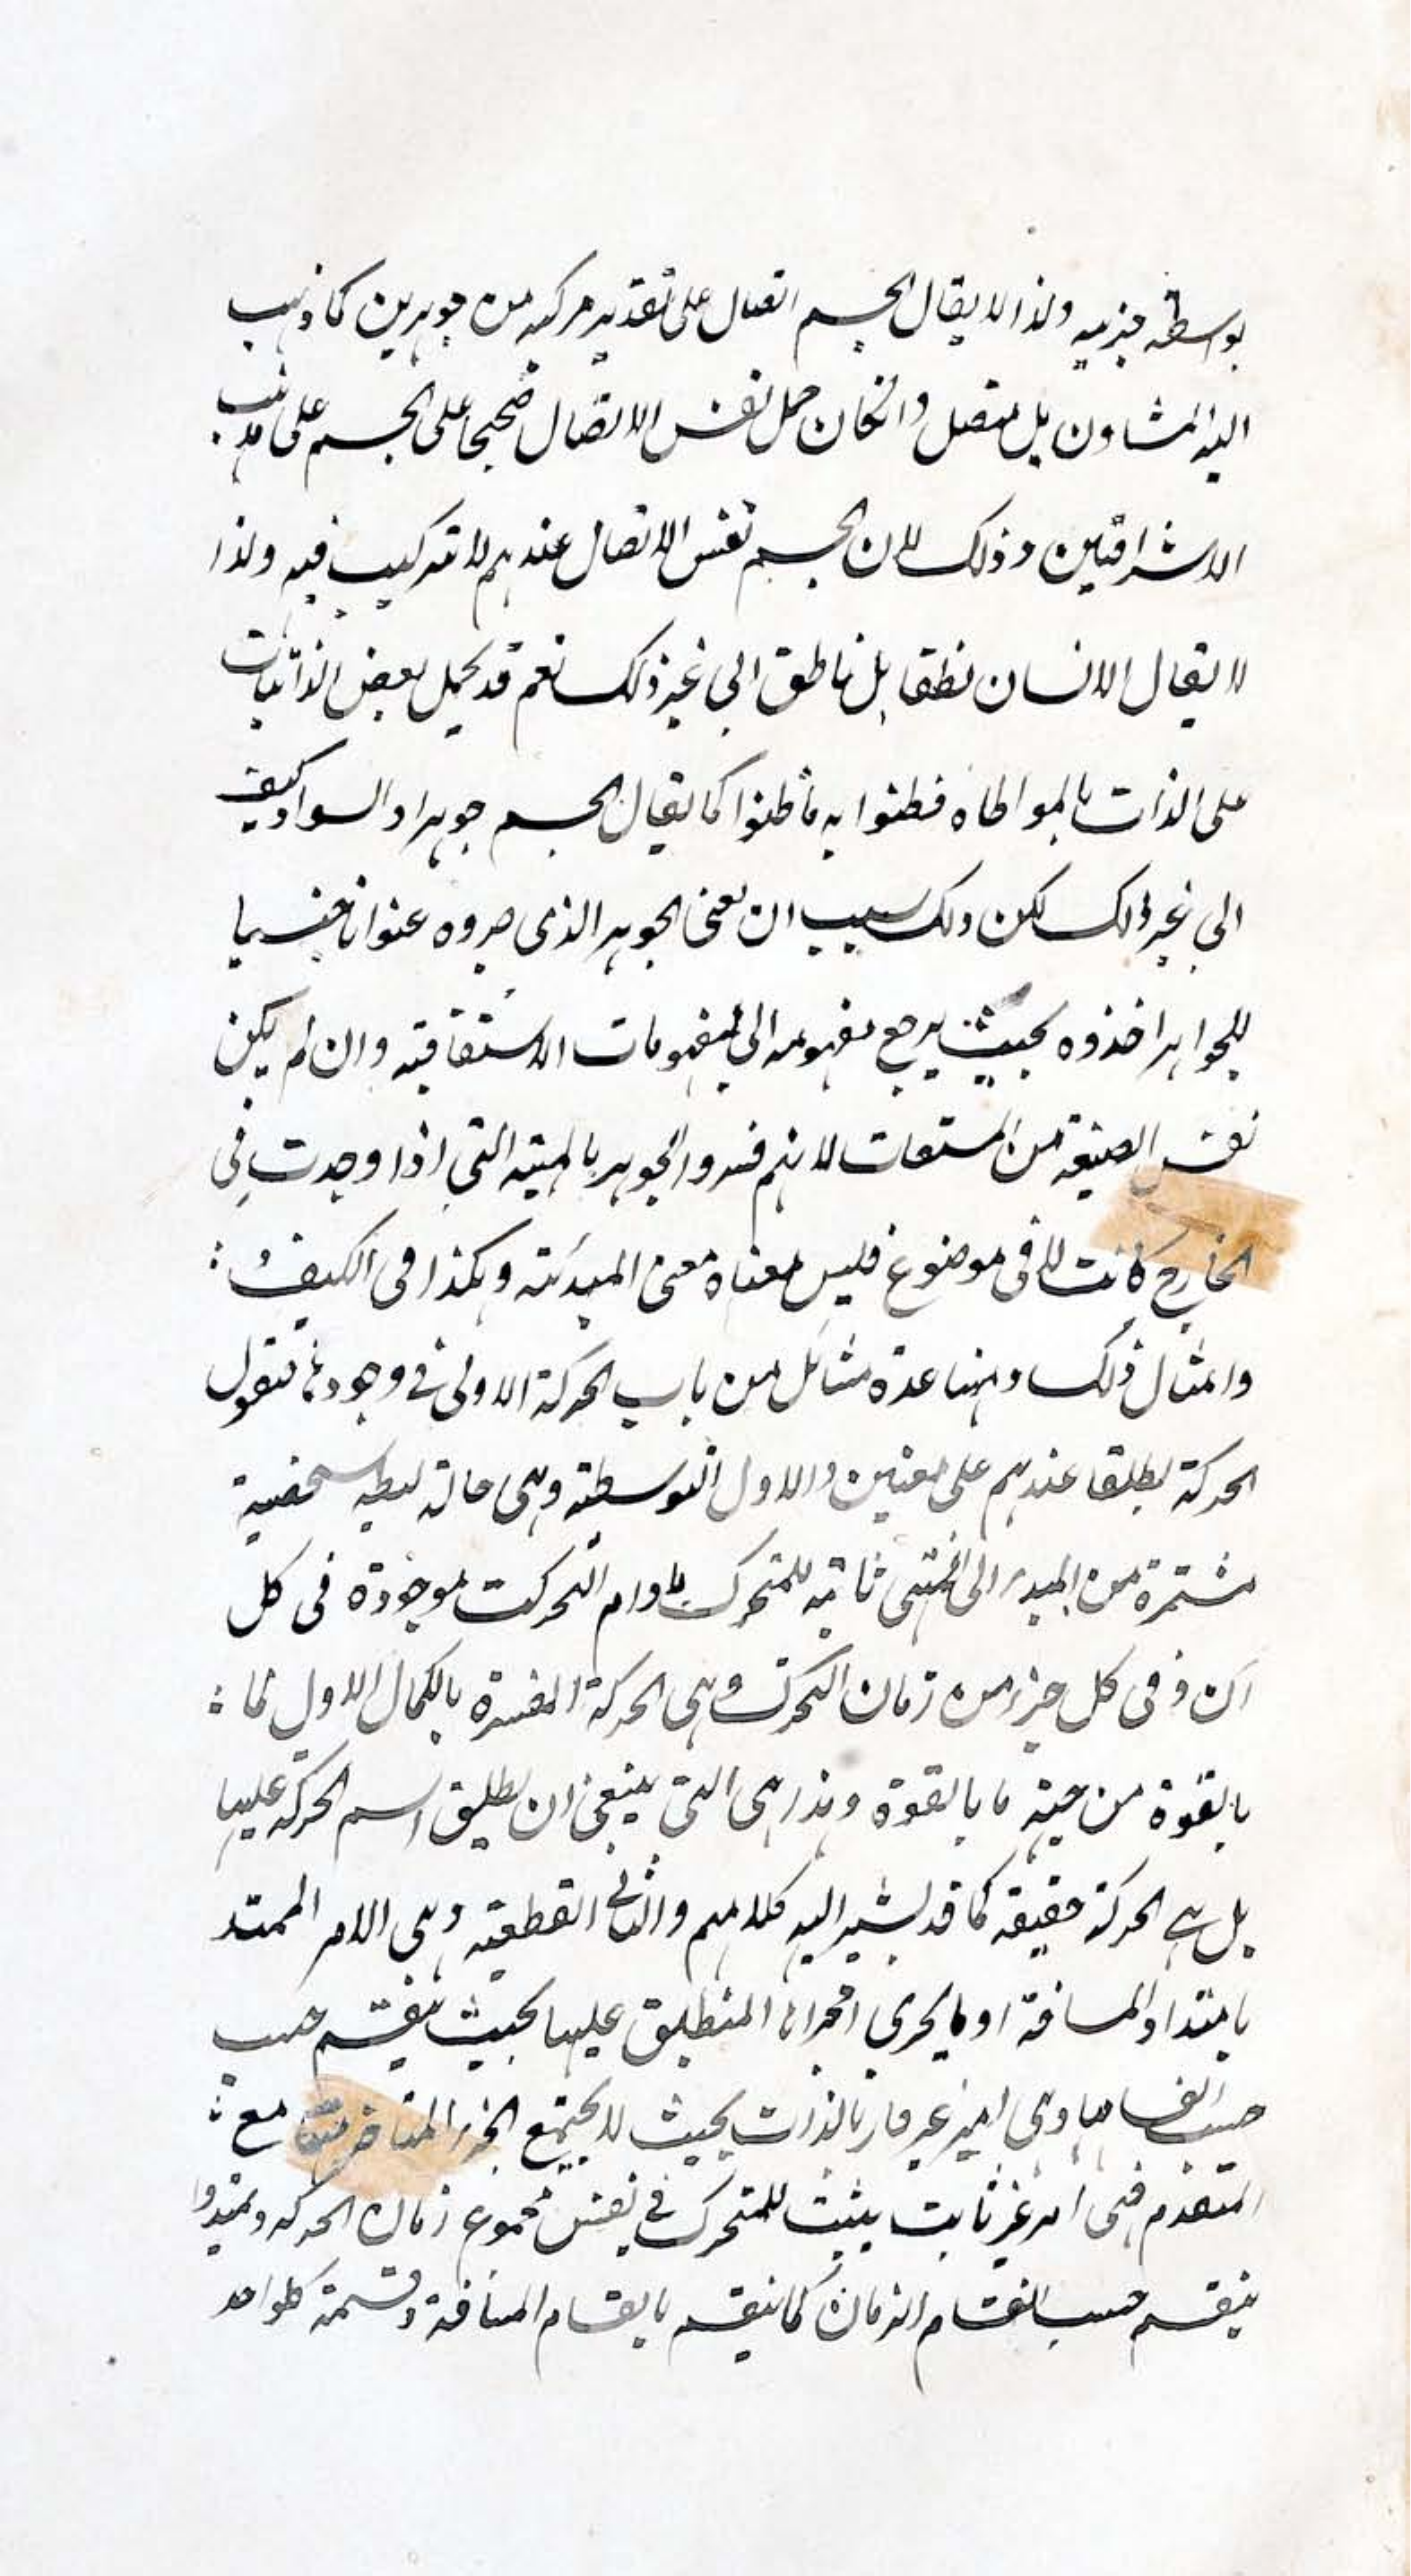 بوسطة جزئيه ولذا لا يقال الجسم اتصال على تقدير تركبه من جوهرين كما ذهب
اليه المشاون بل متصل وانكان حمل نفس الاتصال صحيحا على الجسم على مذهب
الاشراقيين وذلك لان الجسم نفس الاتصال عندهم لا تركيب فيه ولذا
لا يقال الانسان نطقا بل ناطق الى غير ذلك نعم قد يحمل بعض الذاتيات
على الذات بالمواطاة فظنوا به ما ظنوا كما يقال الجسم جوهر والسواد كيف
الى غير ذلك لكن ذلك بسبب ان معنى الجوهر الذى صيروه عنوانا جنسيا
للجواهر اخذوه بحيث يرجع مفهومه الى المفهومات الاشتقاقية وان لم يكن
نفس الصيغة من المشتقات لانهم فسروا الجوهر بالمهية التى اذا وجدت فى
الخارج كانت لا فى موضوع فليس معناه معنى المبدئية وهكذا فى الكيف
وامثال ذلك وههنا عدة مسائل من باب الحركة الاولى فى وجودها فنقول
الحركة يطلق عندهم على معنيين الاول التوسطية وهى حالة بسيطة شخصية
مستمرة من المبدء الى المنتهى ثابتة للمتحرك مادام التحرك موجودة فى كل
آن وفى كل جزء من زمان التحرك وهى الحركة المفسرة بالكمال الاول لما
بالقوة من حيث ما بالقوة وهذا هى التى ينبغى ان يطلق اسم الحركة عليها
بل هى الحركة حقيقة كما قد يشير اليه كلامهم والثانى القطعية وهى الامر الممتد
بامتداد المسافة او ما يجرى مجراها المنطبق عليها بحيث ينقسم حسب
حسب انقسامها وهى امر غير قار بالذات بحيث لا يجتمع الجزء المتاخر منه مع
المتقدم فهى امر غير ثابت يثبت للمتحرك فى نفس مجموع زمان الحركة
ينقسم حسب انقسام الزمان كما ينقسم بانقسام المسافة وقسمة كلواحد